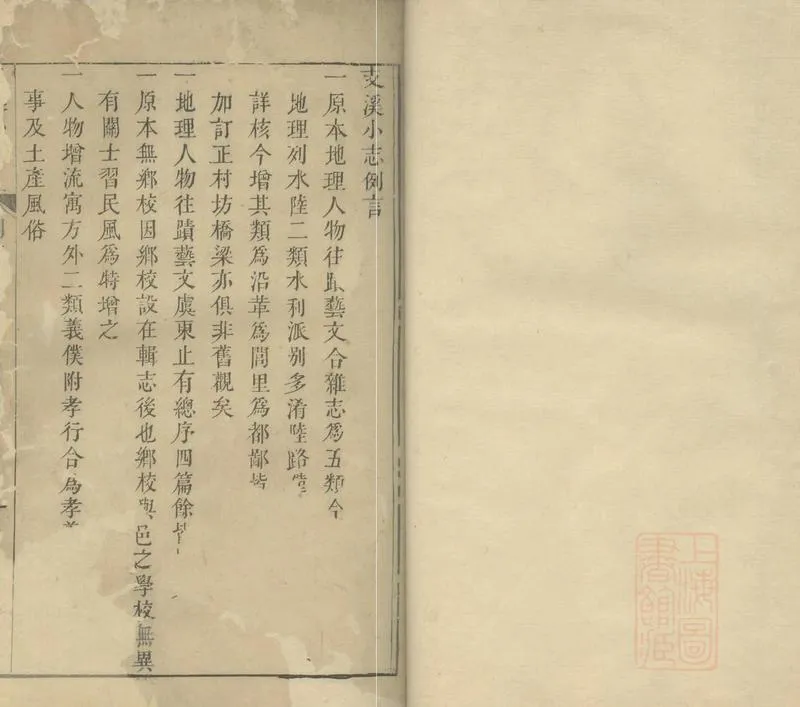 支溪小志例言
一原本地理人物往蹟藝文合雜志爲五類今
地理列水陸二類水利派別多淆陸路
詳核今增其類爲沿革爲閭里爲都鄙皆
加訂正村坊橋梁亦俱非舊觀矣
一地理人物往蹟藝文虞東止有總序四篇餘皆
一原本無鄉校因鄉校設在輯志後也鄉校與邑之學校無異
有關士習民風爲特增之
一人物增流寓方外二類義僕附孝行合爲孝義
事及土產風俗
上海圖書館藏